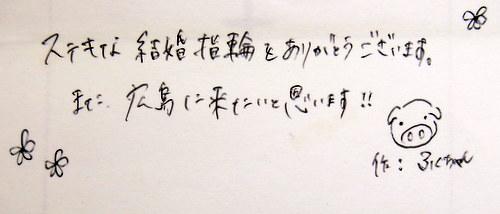 ステキな結婚指輪をありがとうございます。
また広島に来たいと思います!!
作:ふくちゃん